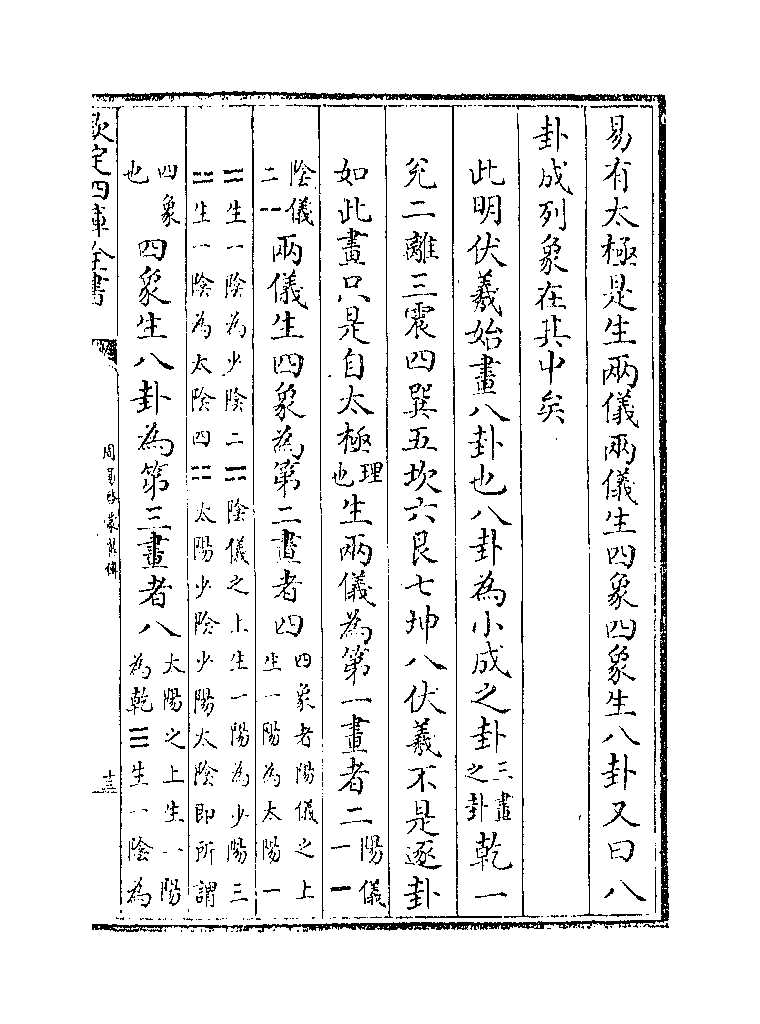 易有太極是生兩儀兩儀生四象四象生八卦又曰八
卦成列象在其中矣
此明伏羲始畫八卦也八卦為小成之卦三畫之卦乾一
兊二離三震四巽五坎六艮七坤八伏羲不是逐卦
如此畫只是自太極理也生兩儀為第一畫者二陽儀一⚊
陰儀二⚋兩儀生四象為第二畫者四四象者陽儀之上生一陽為太陽一
⚌生一陰為少陰二⚍陰儀之上生一陽為少陽三⚎生一陰為太陰四⚏太陽少陰少陽太陰即所謂
四象也四象生八卦為第三畫者八太陽之上生一陽為乾☰生一陰為
欽定四庫全書
周易啓蒙翼傳
十三